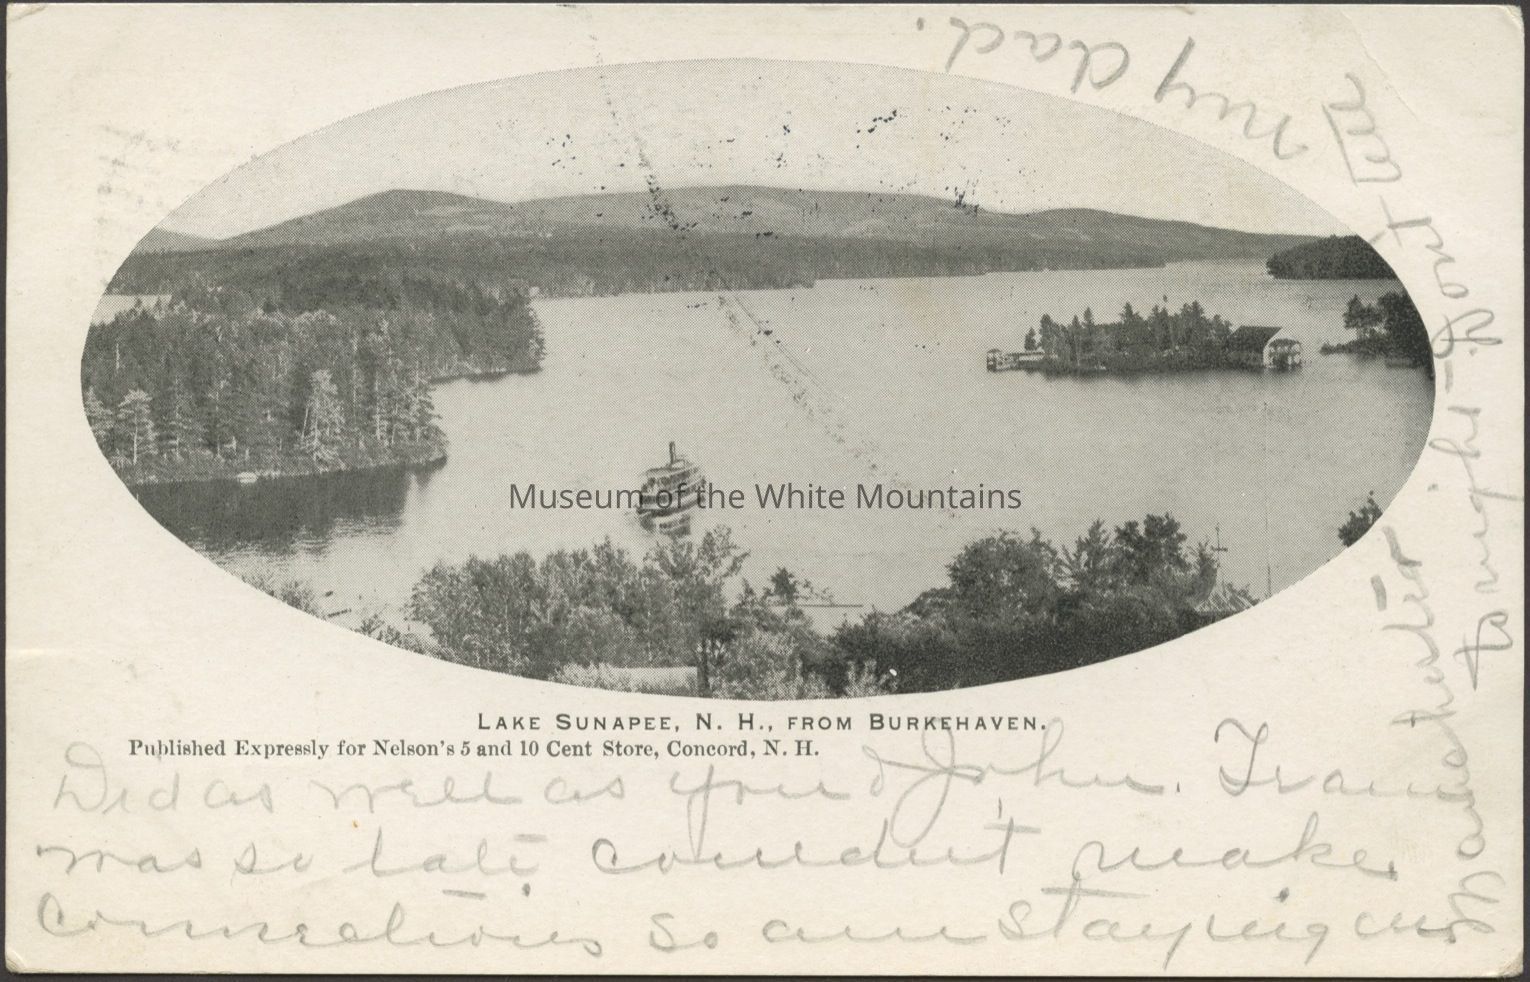 Museum of the White Mountains
LAKE SUNAPEE, N. H., FROM BURKEHAVEN.
Published Expressly for Nelson's 5 and 10 Cent Store, Concord, N. H.
Did as well as you & John. Train
was so late couldn't make
connections so am staying in
Manchester
to night - Don't tell
my dad.